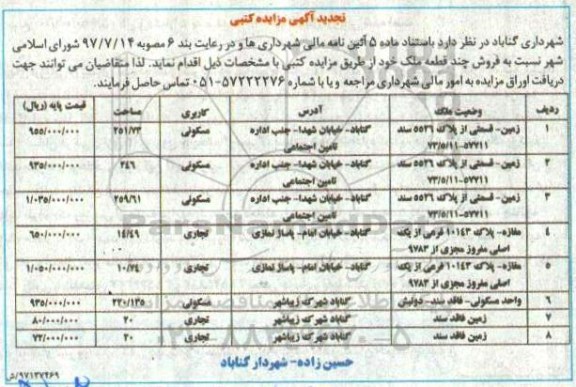 تجدید آگهی مزایده کتبی
شهرداری گناباد در نظر دارد باستناد ماده ۵ آئین نامه مالی شهرداری ها و در رعایت بند ۶ مصوبه ۹۷/۷/۱۴ شورای اسلامی
شهر نسبت به فروش چند قطعه ملک خود از طریق مزایده کتبی با مشخصات ذیل اقدام نماید. لذا متقاضیان می توانند جهت
دریافت اوراق مزایده به امور مالی شهرداری مراجعه و یا با شماره ۵۷۲۲۲۲۷۶-۰۵۱ تماس حاصل فرمایند.
ردیف وضعیت ملک آدرس کاربری مساحت قیمت پایه (ریال)
۱ زمین- قسمتی از پلاک ۵۵۲۶ سند گناباد- خیابان شهدا- جنب اداره مسکونی ۲۵۱/۷۳ ۹۵۵/۰۰۰/۰۰۰
۷۳/۵/۱۱-۵۷۷۱۱ تامین اجتماعی
۲ زمین- قسمتی از پلاک ۵۵۲۶ سند گناباد- خیابان شهدا- جنب اداره مسکونی ۲۴۶ ۹۳۵/۰۰۰/۰۰۰
۷۳/۵/۱۱-۵۷۷۱۱ تامین اجتماعی
۳ زمین- قسمتی از پلاک ۵۵۲۶ سند گناباد- خیابان شهدا- جنب اداره مسکونی ۲۵۹/۶۱ ۱/۰۳۵/۰۰۰/۰۰۰
۷۳/۵/۱۱-۵۷۷۱۱ تامین اجتماعی
۴ مغازه- پلاک ۱۰۱۴۳ فرعی از یک گناباد- خیابان امام- پاساژ نمازی تجاری ۱۴/۴۹ ۶۵۰/۰۰۰/۰۰۰
اصلی مفروز مجزی از ۹۷۸۳
۵ مغازه- پلاک ۱۰۱۴۳ فرعی از یک گناباد- خیابان امام- پاساژ نمازی تجاری ۱۰/۷۴ ۱/۰۵۰/۰۰۰/۰۰۰
اصلی مفروز مجزی از ۹۷۸۳
۶ واحد مسکونی- فاقد سند- دونبش گناباد شهرک زیباشهر مسکونی ۲۲۰/۱۳۵ ۹۳۵/۰۰۰/۰۰۰
۷ زمین فاقد سند گناباد شهرک زیباشهر تجاری ۲۰ ۸۰/۰۰۰/۰۰۰
۸ زمین فاقد سند گناباد شهرک زیباشهر تجاری ۲۰ ۷۲/۰۰۰/۰۰۰
حسین زاده- شهردار گناباد
۹۷۱۳۷۴۶۹/ش